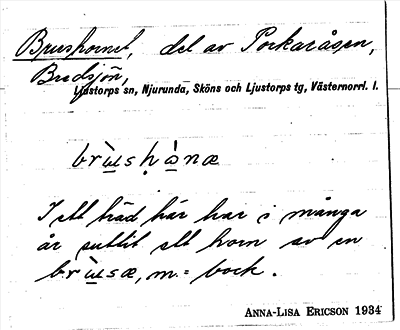 Brushornet, del av Porkaråsen,
Bredsjön,
Ljustorps sn, Njurunda, Sköns och Ljustorps tg, Västernorrl. l.
brùshὼnæ
I ett träd här har i många
år suttit ett horn av en
brùsæ, m. = bock.
ANNA-LISA ERICSON 1934